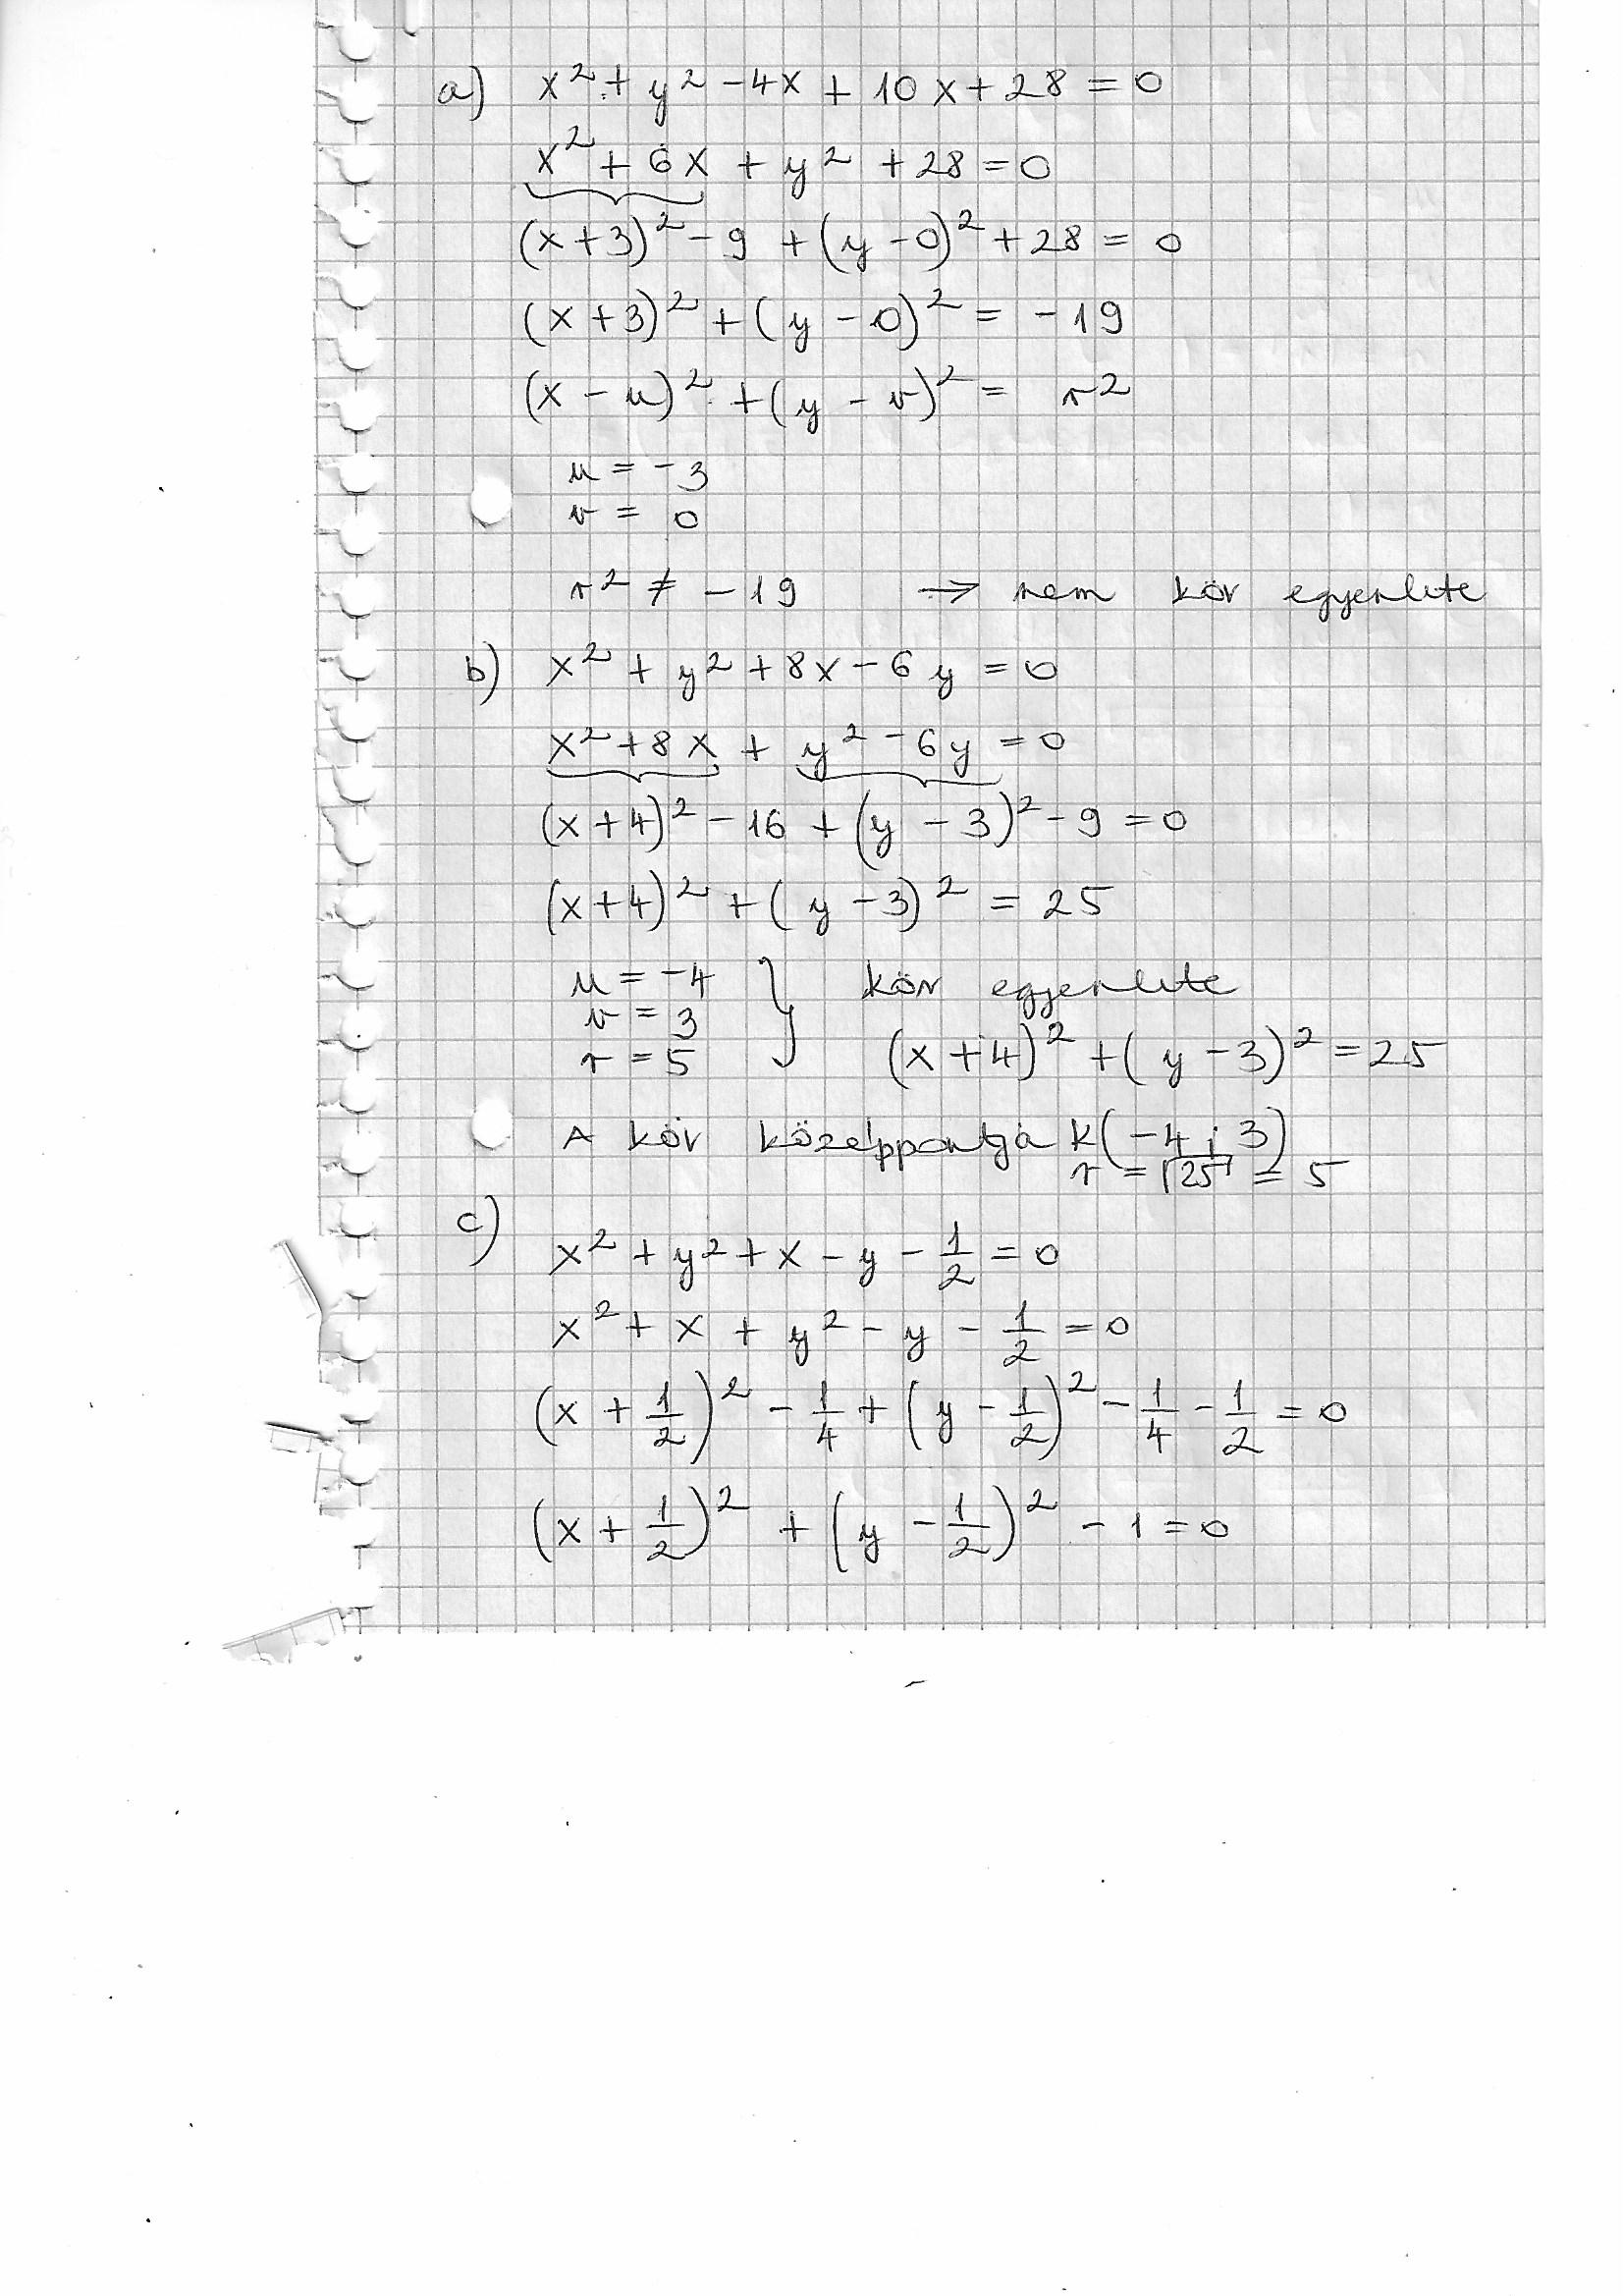 a) x² + y² - 4x + 10x + 28 = 0
x² + 6x + y² + 28 = 0
(x+3)² - 9 + (y-0)² + 28 = 0
(x+3)² + (y-0)² = -19
(x-u)² + (y-v)² = r²
u = -3
v = 0
r² ≠ -19 → nem kör egyenlete
b) x² + y² + 8x - 6y = 0
x² + 8x + y² - 6y = 0
(x+4)² - 16 + (y-3)² - 9 = 0
(x+4)² + (y-3)² = 25
u = -4 } kör egyenlete
v = 3
r = 5 (x+4)² + (y-3)² = 25
A kör középpontja K(-4; 3)
r = √25 = 5
c)
x² + y² + x - y - 1/2 = 0
x² + x + y² - y - 1/2 = 0
(x + 1/2)² - 1/4 + (y - 1/2)² - 1/4 - 1/2 = 0
(x + 1/2)² + (y - 1/2)² - 1 = 0